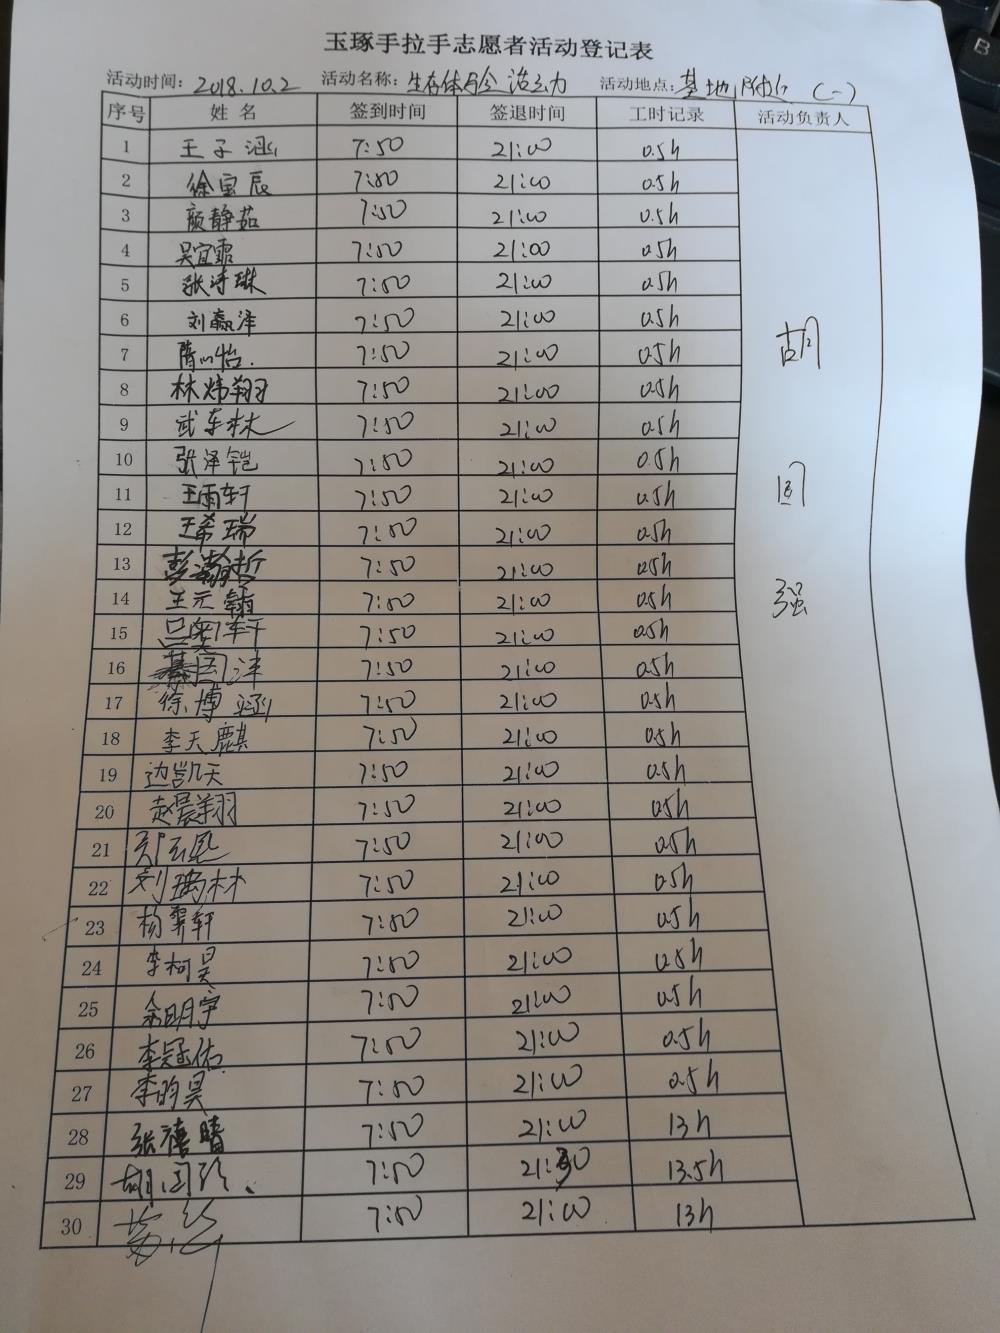 玉琢手拉手志愿者活动登记表
活动时间: 2018.10.2 活动名称: 生存体验 活动地点: 基地附近 (一)
序号 姓名 签到时间 签退时间 工时记录 活动负责人
1 王子涵 7:50 21:00 0.5h
2 徐宝辰 7:50 21:00 0.5h
3 颜静茹 7:50 21:00 0.5h
4 吴宜霏 7:50 21:00 0.5h
5 张诗琳 7:50 21:00 0.5h
6 刘嬴泽 7:50 21:00 0.5h
7 隋心怡. 7:50 21:00 0.5h 胡
8 林炜翔 7:50 21:00 0.5h
9 武东林 7:50 21:00 0.5h
10 张泽铠 7:50 21:00 0.5h
11 王雨轩 7:50 21:00 0.5h 国
12 王希瑞 7:50 21:00 0.5h
13 彭瀚哲 7:50 21:00 0.5h
14 王元翰 7:50 21:00 0.5h 强
15 吕奥轩 7:50 21:00 0.5h
16 綦国沣 7:50 21:00 0.5h
17 徐博涵 7:50 21:00 0.5h
18 李天麒 7:50 21:00 0.5h
19 边凯天 7:50 21:00 0.5h
20 赵晨翔 7:50 21:00 0.5h
21 7:50 21:00 0.5h
22 刘瑀林 7:50 21:00 0.5h
23 杨霁轩 7:50 21:00 0.5h
24 李柯昊 7:50 21:00 0.5h
25 余明宇 7:50 21:00 0.5h
26 李冠佑 7:50 21:00 0.5h
27 李昀昊 7:50 21:00 0.5h
28 张禧晴 7:50 21:00 13h
29 胡国强. 7:50 21:30 13.5h
30 7:50 21:00 13h